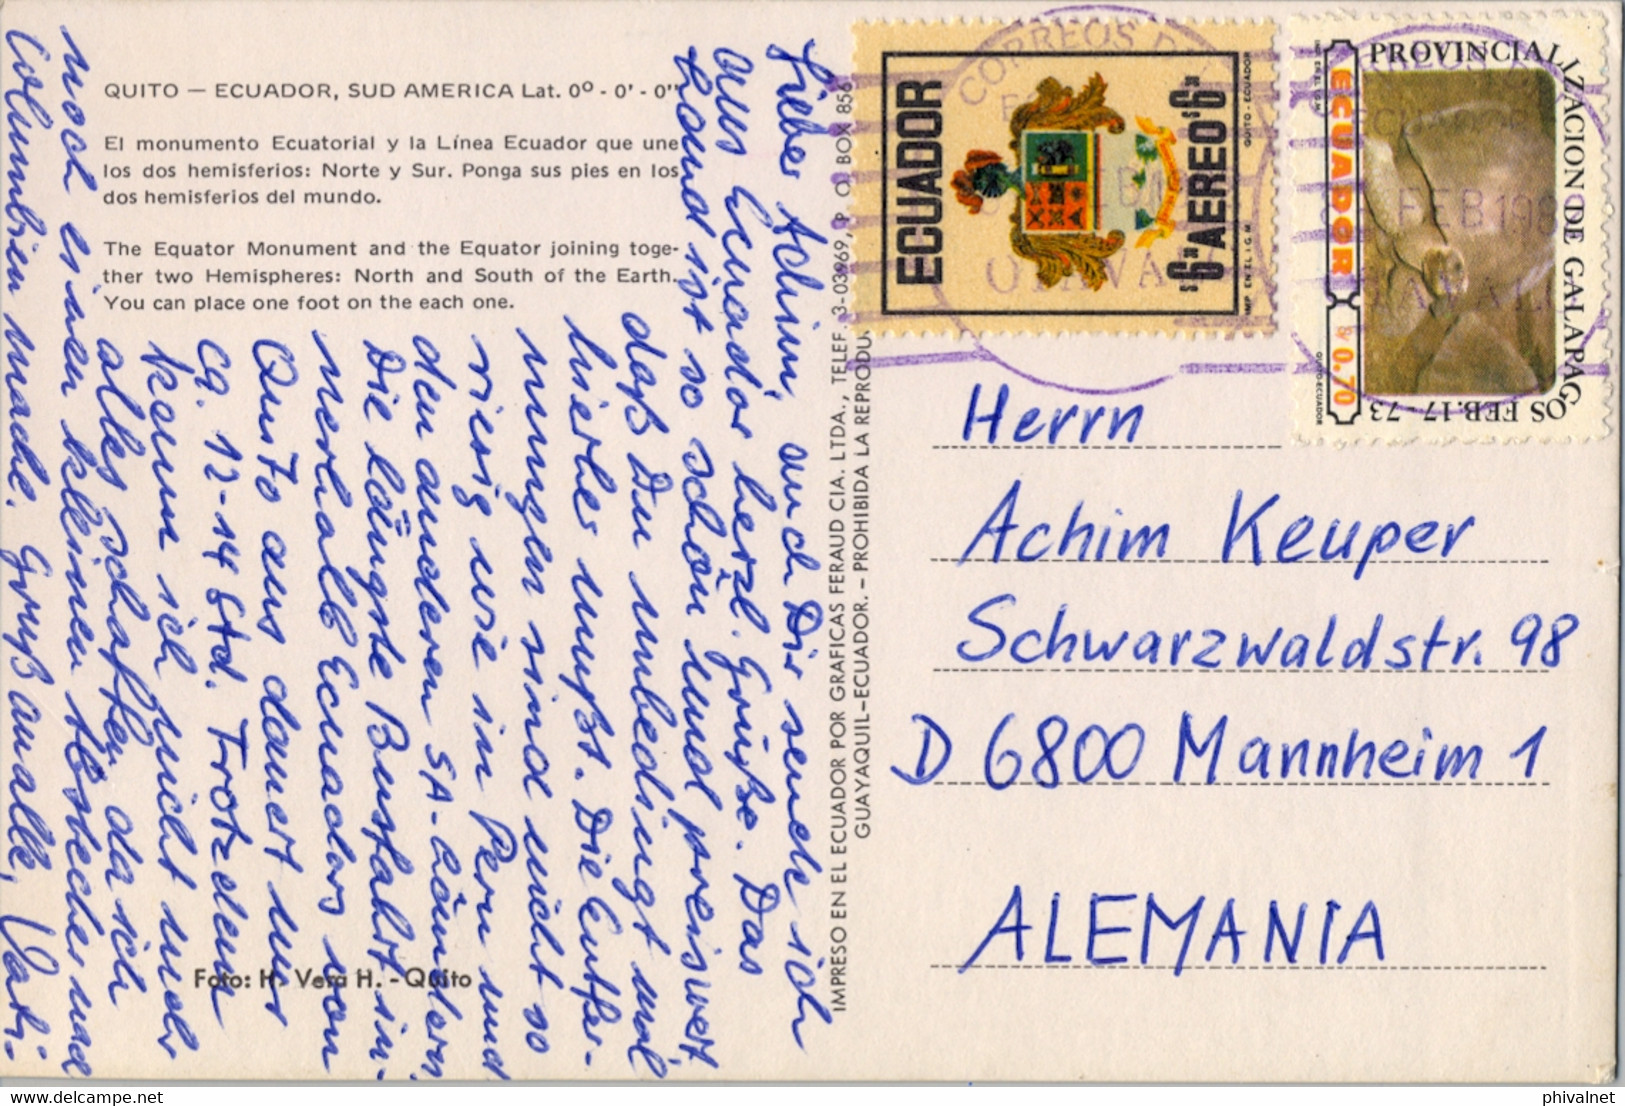 QUITO — ECUADOR, SUD AMERICA Lat. 0º - 0' - 0"
El monumento Ecuatorial y la Línea Ecuador que une
los dos hemisferios: Norte y Sur. Ponga sus pies en los
dos hemisferios del mundo.
The Equator Monument and the Equator joining toge-
ther two Hemispheres: North and South of the Earth.
You can place one foot on the each one.
Lieber Achim, auch Dir sende ich
aus Ecuador herzl. Grüße. Das
Land ist so schön und preiswert,
daß Du unbedingt mal
hierher mußt. Die Entfer-
nungen sind nicht so
riesig wie in Peru und
den anderen SA-Ländern
Die längste Busfahrt in-
nerhalb Ecuadors von
Quito aus dauert nur
ca. 12-14 Std. Trotzdem
kann ich nicht mehr
alles schaffen, da ich
noch einen kleinen Abstecher nach
Columbien mache. Gruß an alle, Vati-
Foto: H. Vera H. - Quito
IMPRESO EN EL ECUADOR POR GRAFICAS FERAUD CIA. LTDA., TELEF. 3-03969, P. O. BOX 856
GUAYAQUIL-ECUADOR. - PROHIBIDA LA REPRODU
ECUADOR
AEREO
QUITO - ECUADOR
IMP. EN EL I.G.M.
PROVINCIALIZACION DE GALAPAGOS FEB. 17 - 73
ECUADOR
0.70
QUITO-ECUADOR
CORREOS DEL
OTAVALO
FEB 198
Herrn
Achim Keuper
Schwarzwaldstr. 98
D 6800 Mannheim 1
ALEMANIA
phivalnet